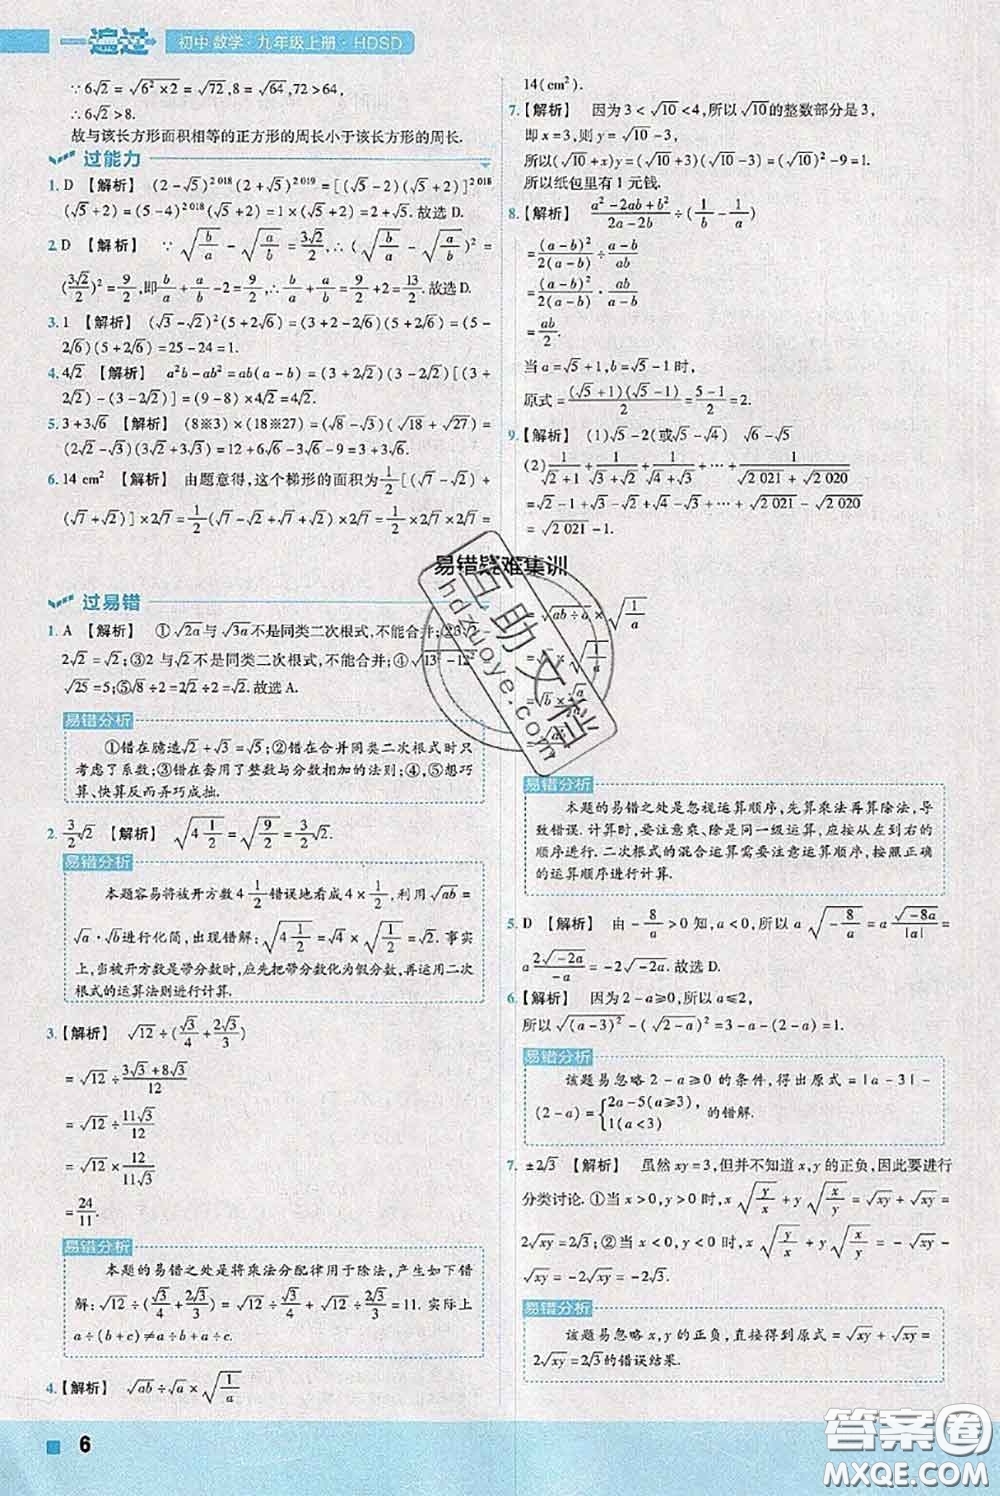 一遍过 初中 数学·九年级上册·HDSD
∵6√2 = √(6²×2) = √72, 8 = √64, 72 > 64,
∴6√2 > 8.
故与该长方形面积相等的正方形的周长小于该长方形的周长.
过能力
1. D 【解析】 (2-√5)^2018(2+√5)^2019=[(√5-2)(√5+2)]^2018
(√5+2)=(5-4)^2018(√5+2)=1×(√5+2)=√5+2.故选D.
2. D 【解析】 ∵√(b/a)-√(a/b)=3√2/2,∴(√(b/a)-√(a/b))²=
(3√2/2)²=9/2,即b/a+a/b-2=9/2,∴b/a+a/b=9/2+2=13/2.故选D.
3. 1 【解析】 (√3-√2)²(5+2√6)=(3+2-2√6)(5+2√6)=(5-
2√6)(5+2√6)=25-24=1.
4. 4√2 【解析】 a²b-ab²=ab(a-b)=(3+2√2)(3-2√2)[(3+
2√2)-(3-2√2)]=(9-8)×4√2=4√2.
5. 3+3√6 【解析】 (8※3)×(18※27)=(√8-√3)(√18+√27)=
(2√2-√3)(3√2+3√3)=12+6√6-3√6-9=3+3√6.
6. 14 cm² 【解析】 由题意得,这个梯形的面积为1/2[(√7-√2)+
(√7+√2)]×2√7=1/2(√7-√2+√7+√2)×2√7=1/2×2√7×2√7=
14(cm²).
7.【解析】 因为3<√10<4,所以√10的整数部分是3,
即x=3,则y=√10-3,
所以(√10+x)y=(√10+3)(√10-3)=(√10)²-9=1.
所以纸包里有1元钱.
8.【解析】 (a²-2ab+b²)/(2a-2b)÷(1/b-1/a)
=(a-b)²/2(a-b)÷(a-b)/ab
=(a-b)²/2(a-b)·ab/(a-b)
=ab/2.
当a=√5+1,b=√5-1时,
原式=(√5+1)(√5-1)/2=(5-1)/2=2.
9.【解析】 (1)√5-2(或√5-√4) √6-√5
(2)1/(√2+1)+1/(√3+√2)+1/(√4+√3)+…+1/(√2 021+√2 020)
=√2-1+√3-√2+√4-√3+…+√2 021-√2 020
=√2 021-1.
易错疑难集训
过易错
1. A 【解析】 ①√2a与√3a不是同类二次根式,不能合并;②3√2-
2√2=√2;③2与√2不是同类二次根式,不能合并;④√(13²-12²)=
√25=5;⑤√8÷2=√2.故选A.
易错分析
①错在臆造√2+√3=√5;②错在合并同类二次根式时只
考虑了系数;③错在套用了整数与分数相加的法则;④,⑤想巧
算、快算反而弄巧成拙.
2. 3/2√2 【解析】 √(4 1/2)=√(9/2)=3/2√2.
易错分析
本题容易将被开方数4 1/2错误地看成4×1/2,利用√ab=
√a·√b进行化简,出现错解:√(4 1/2)=√4×√(1/2)=√2.事实
上,当被开方数是带分数时,应先把带分数化为假分数,再运用二次
根式的运算法则进行计算.
3.【解析】 √12÷(√3/4+2√3/3)
=√12÷(3√3+8√3)/12
=√12÷11√3/12
=√12×12/11√3
=24/11.
易错分析
本题的易错之处是将乘法分配律用于除法,产生如下错
解:√12÷(√3/4+2√3/3)=√12÷√3/4+√12÷2√3/3=11.实际上
a÷(b+c)≠a÷b+a÷c.
4.【解析】 √ab÷√a×√(1/a)
=√(ab÷a)×√(1/a)
易错分析
本题的易错之处是忽视运算顺序,先算乘法再算除法,导
致错误.计算时,要注意乘、除是同一级运算,应按从左到右的
顺序进行.二次根式的混合运算需要注意运算顺序,按照正确
的运算顺序进行计算.
5. D 【解析】 由-8/a>0知,a<0,所以a√(-8/a)=a√(-8a)/|a|=
a 2√(-2a)/(-a)=-2√(-2a).故选D.
6.【解析】 因为2-a≥0,所以a≤2,
所以√((a-3)²)-(√(2-a))²=3-a-(2-a)=1.
易错分析
该题易忽略2-a≥0的条件,得出原式=|a-3|-
(2-a)={2a-5(a≥3), 1(a<3) 的错解.
7. ±2√3 【解析】 虽然xy=3,但并不知道x,y的正负,因此要进行
分类讨论.①当x>0,y>0时,x√(y/x)+y√(x/y)=√xy+√xy=
2√xy=2√3;②当x<0,y<0时,x√(y/x)+y√(x/y)=-√xy-
√xy=-2√xy=-2√3.
易错分析
该题易忽略x,y的正负,直接得到原式=√xy+√xy=
2√xy=2√3的错误结果.
6
互助文档
hdzuoye.com
答案圈
MXQE.COM